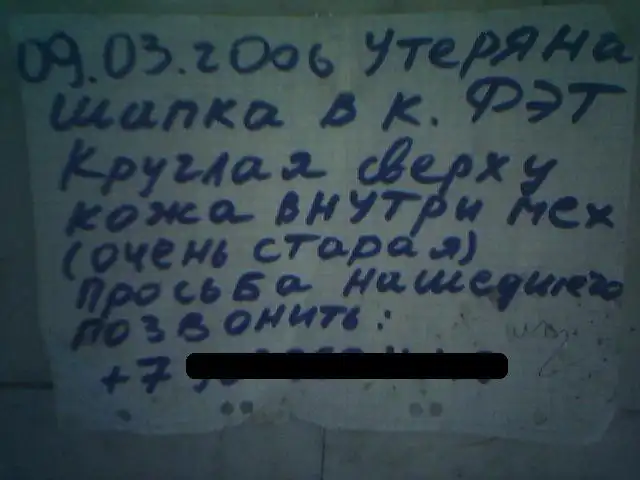 09.03.2006 утеряна
шапка в к. ФЭТ
Круглая сверху
кожа внутри мех
(очень старая)
просьба нашедшего
позвонить:
+7